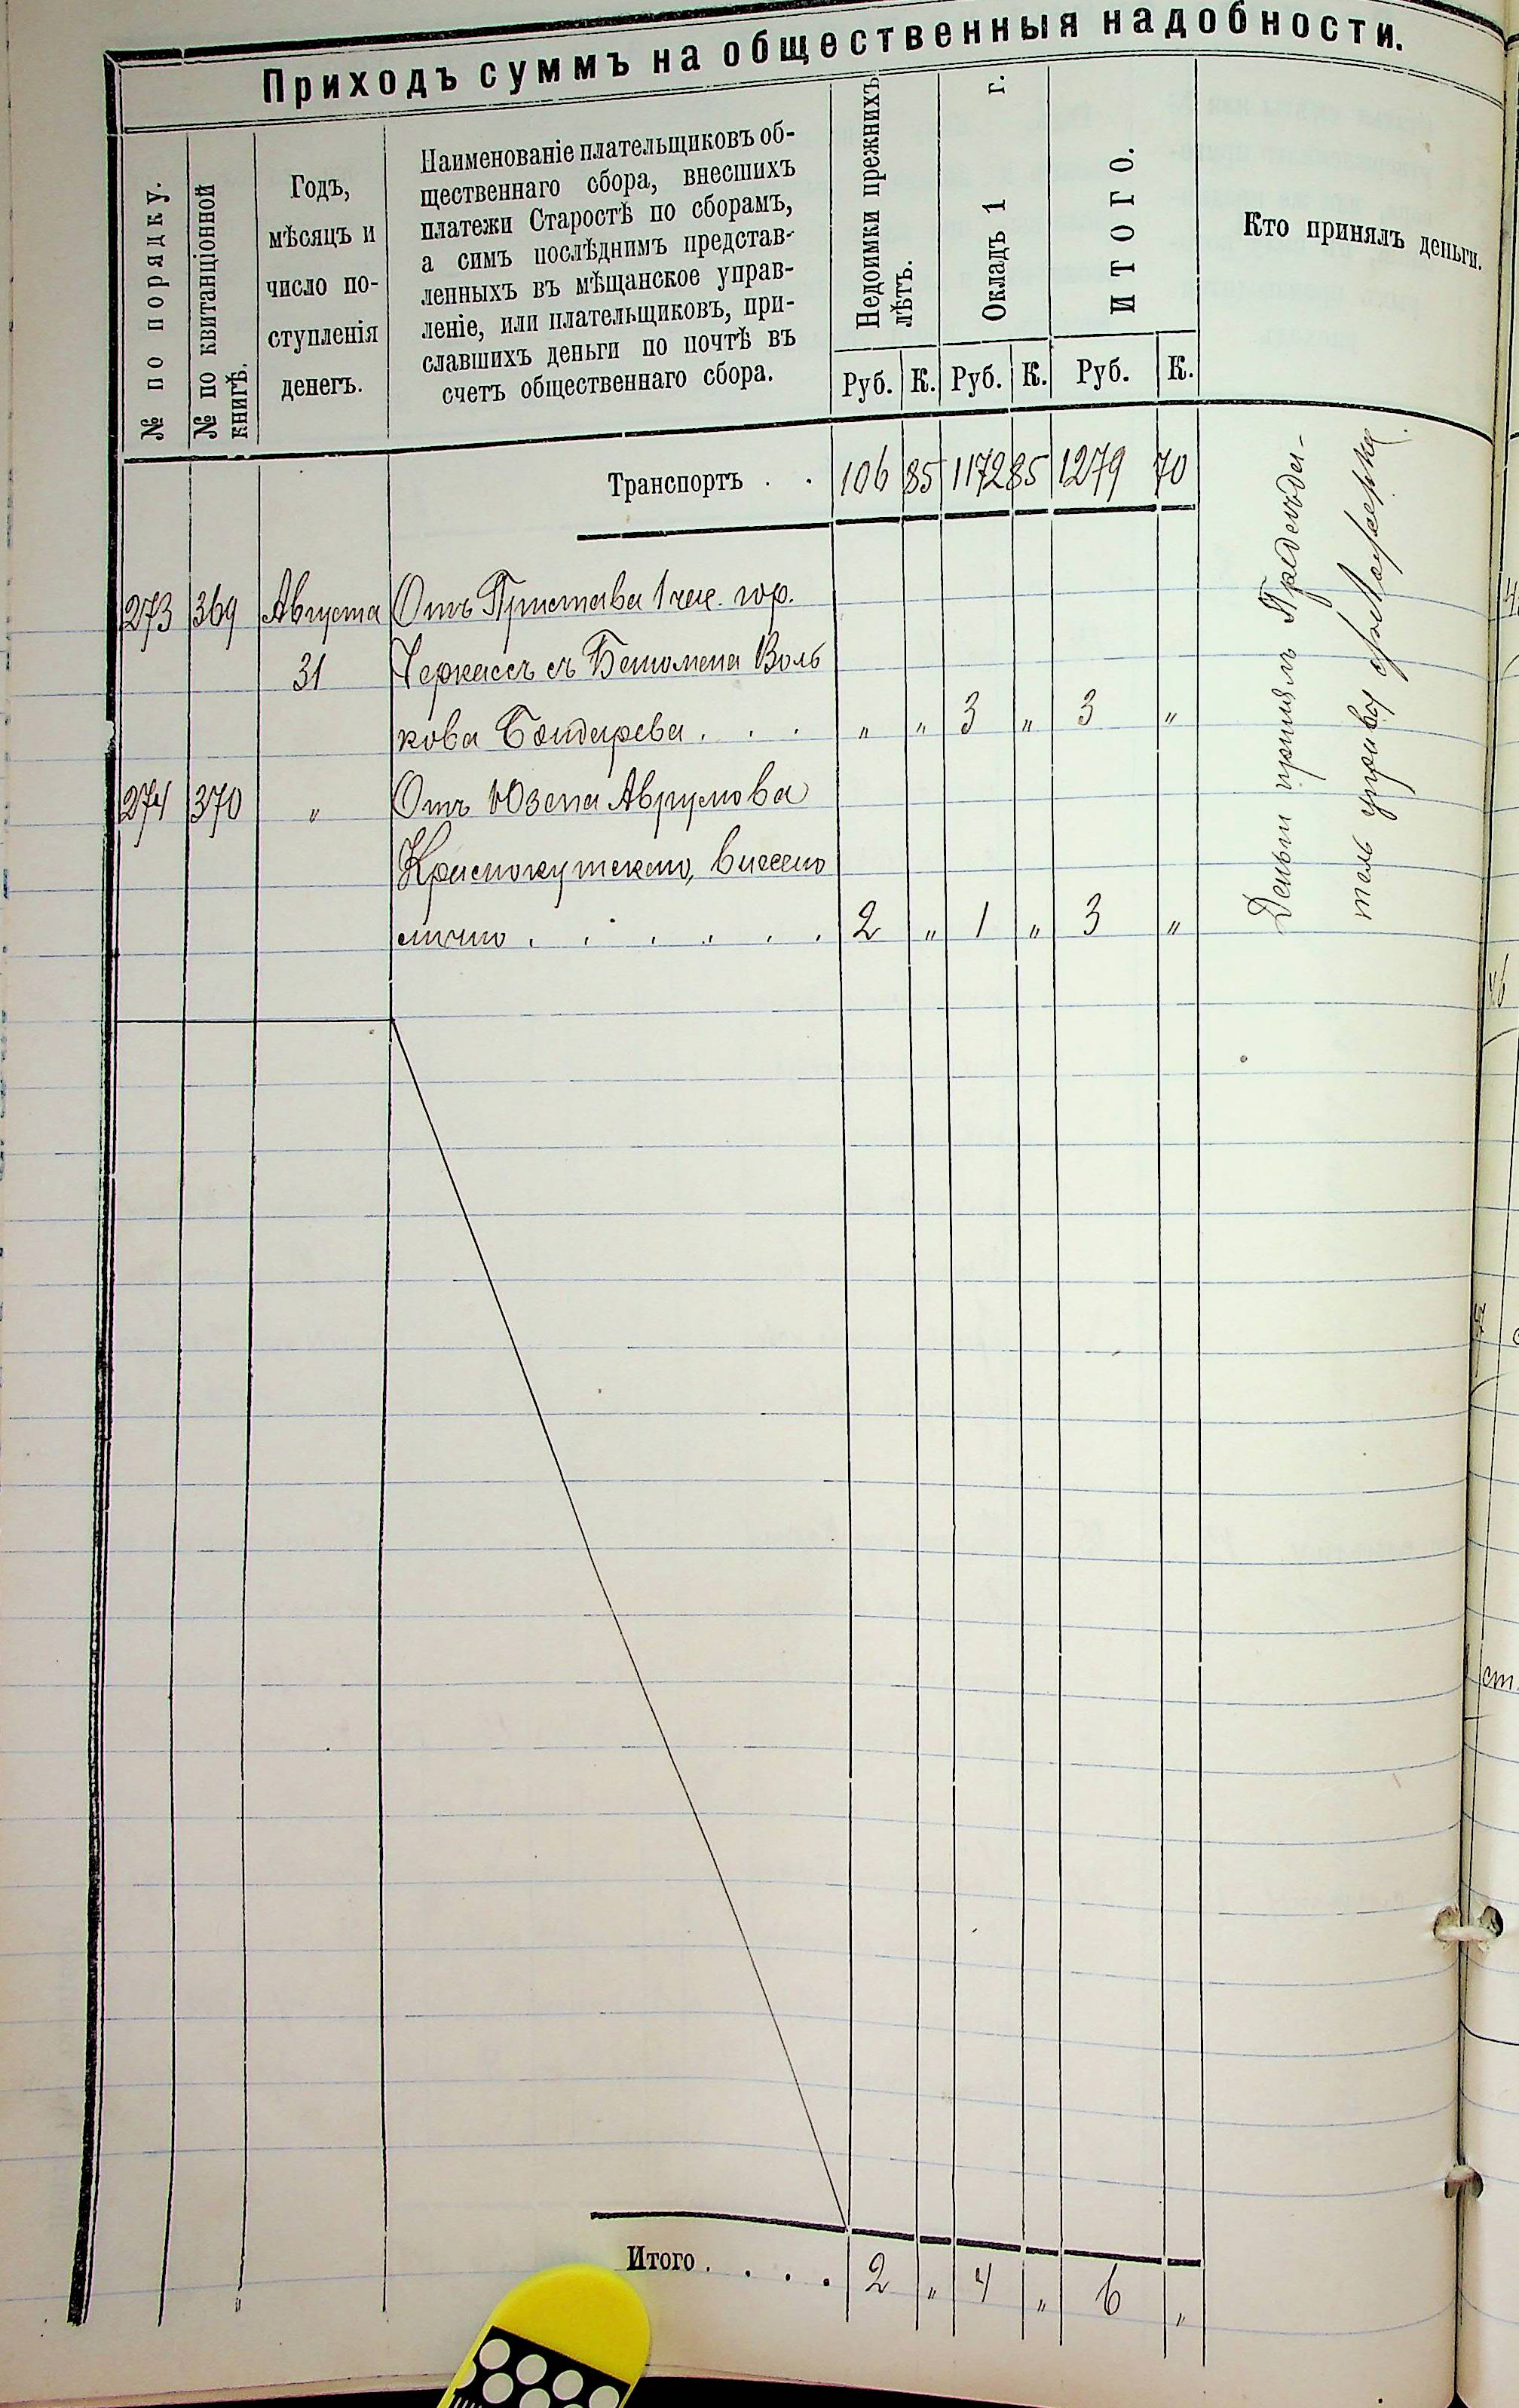 Приходъ суммъ на общественныя надобности.
№ по порядку.
№ по квитанціонной
книгѣ.
Годъ,
мѣсяцъ и
число по-
ступленія
денегъ.
Наименованіе плательщиковъ об-
щественнаго сбора, внесшихъ
платежи Старостѣ по сборамъ,
а симъ послѣднимъ представ-
ленныхъ въ мѣщанское управ-
леніе, или плательщиковъ, при-
славшихъ деньги по почтѣ въ
счетъ общественнаго сбора.
Недоимки прежнихъ
лѣтъ.
Окладъ 1 г.
ИТОГО.
Кто принялъ деньги.
Руб. К. Руб. К. Руб. К.
Транспортъ . . 106 85 1172 85 1279 70
273 369 Августа Отъ Пристава 1 час. гор.
31 Черкассъ съ Воль
кова Бондарева . . . " " 3 " 3 "
274 370 " Отъ Юзепа Аврумова
Краснокутскаго, внесено
лично . . . . . . 2 " 1 " 3 "
Деньги принялъ Предсѣда-
тель управы
Итого . . . . 2 " 4 " 6 "